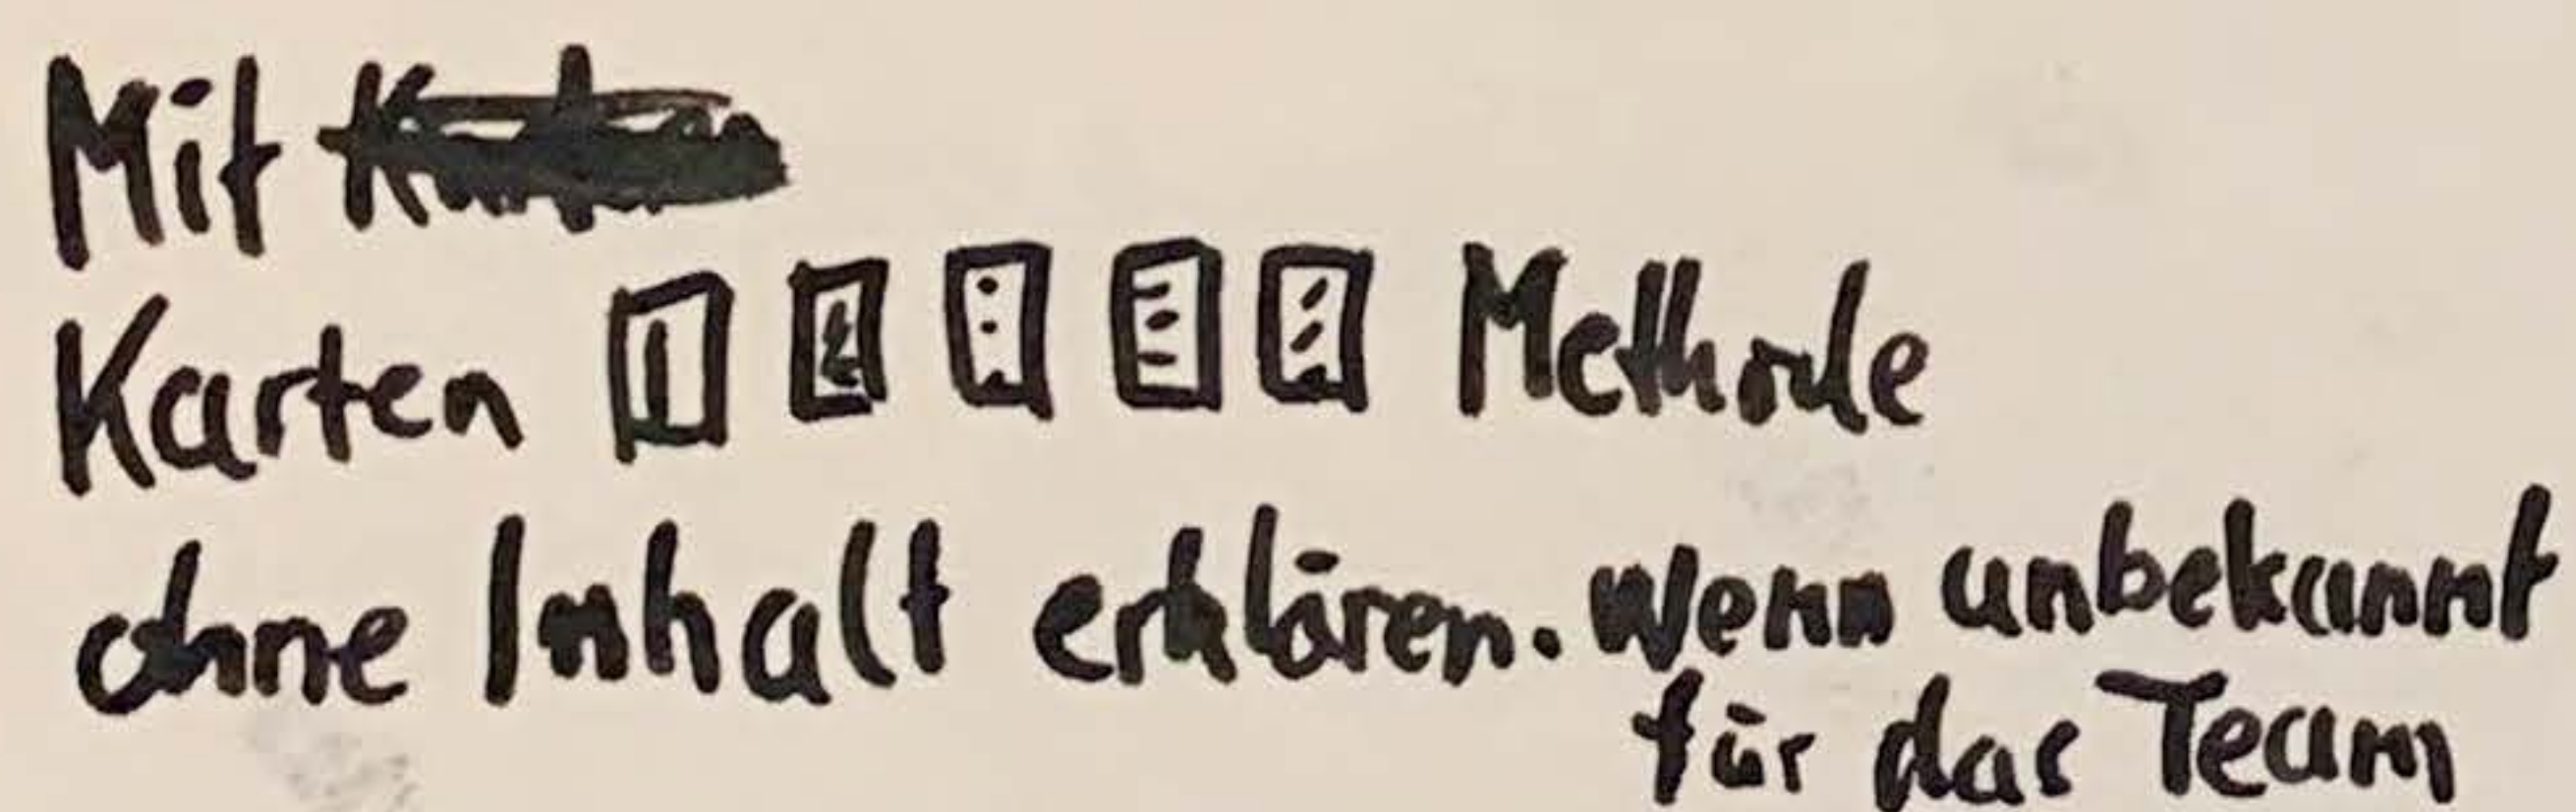 Mit
Karten Methode
ohne Inhalt erklären. wenn unbekannt
für das Team